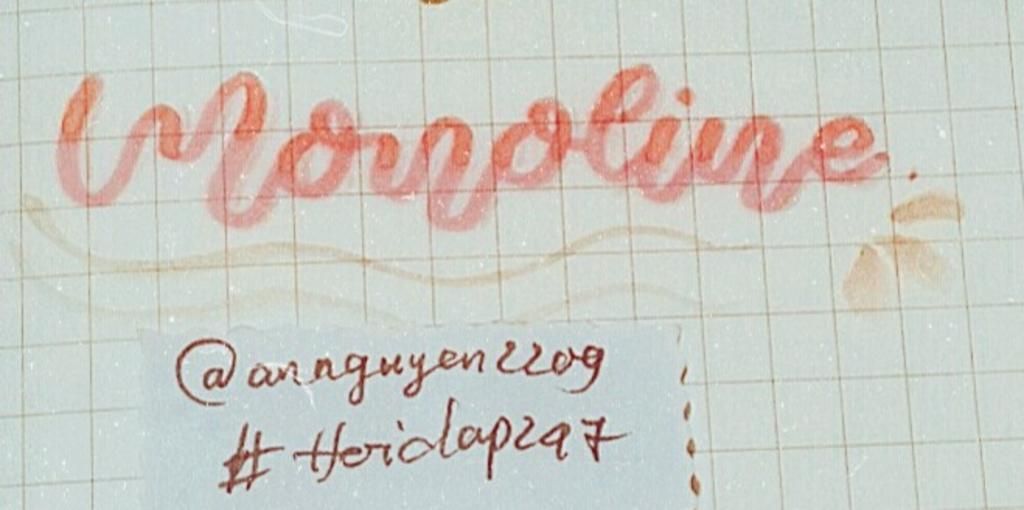 Monoline.
@annguyen2209
#Hoidap247